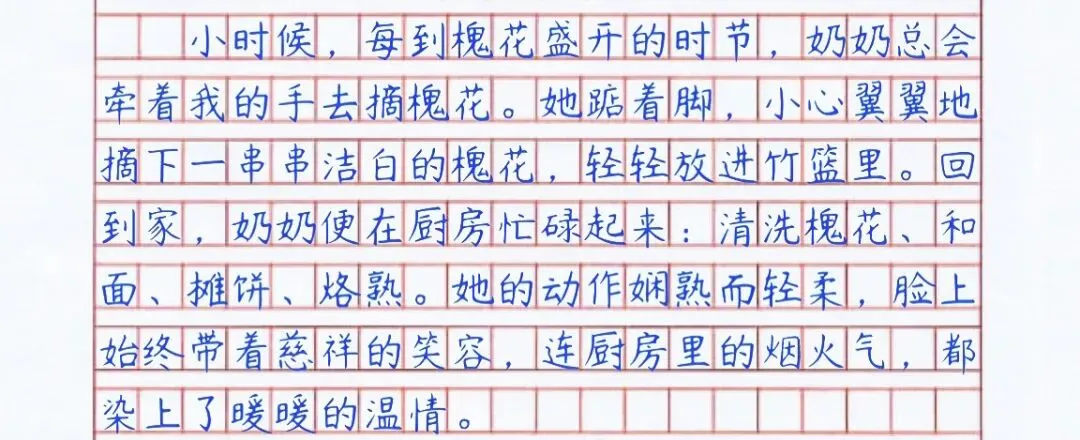 小时候，每到槐花盛开的时节，奶奶总会
牵着我的手去摘槐花。她踮着脚，小心翼翼地
摘下一串串洁白的槐花，轻轻放进竹篮里。回
到家，奶奶便在厨房忙碌起来：清洗槐花、和
面、摊饼、烙熟。她的动作娴熟而轻柔，脸上
始终带着慈祥的笑容，连厨房里的烟火气，都
染上了暖暖的温情。